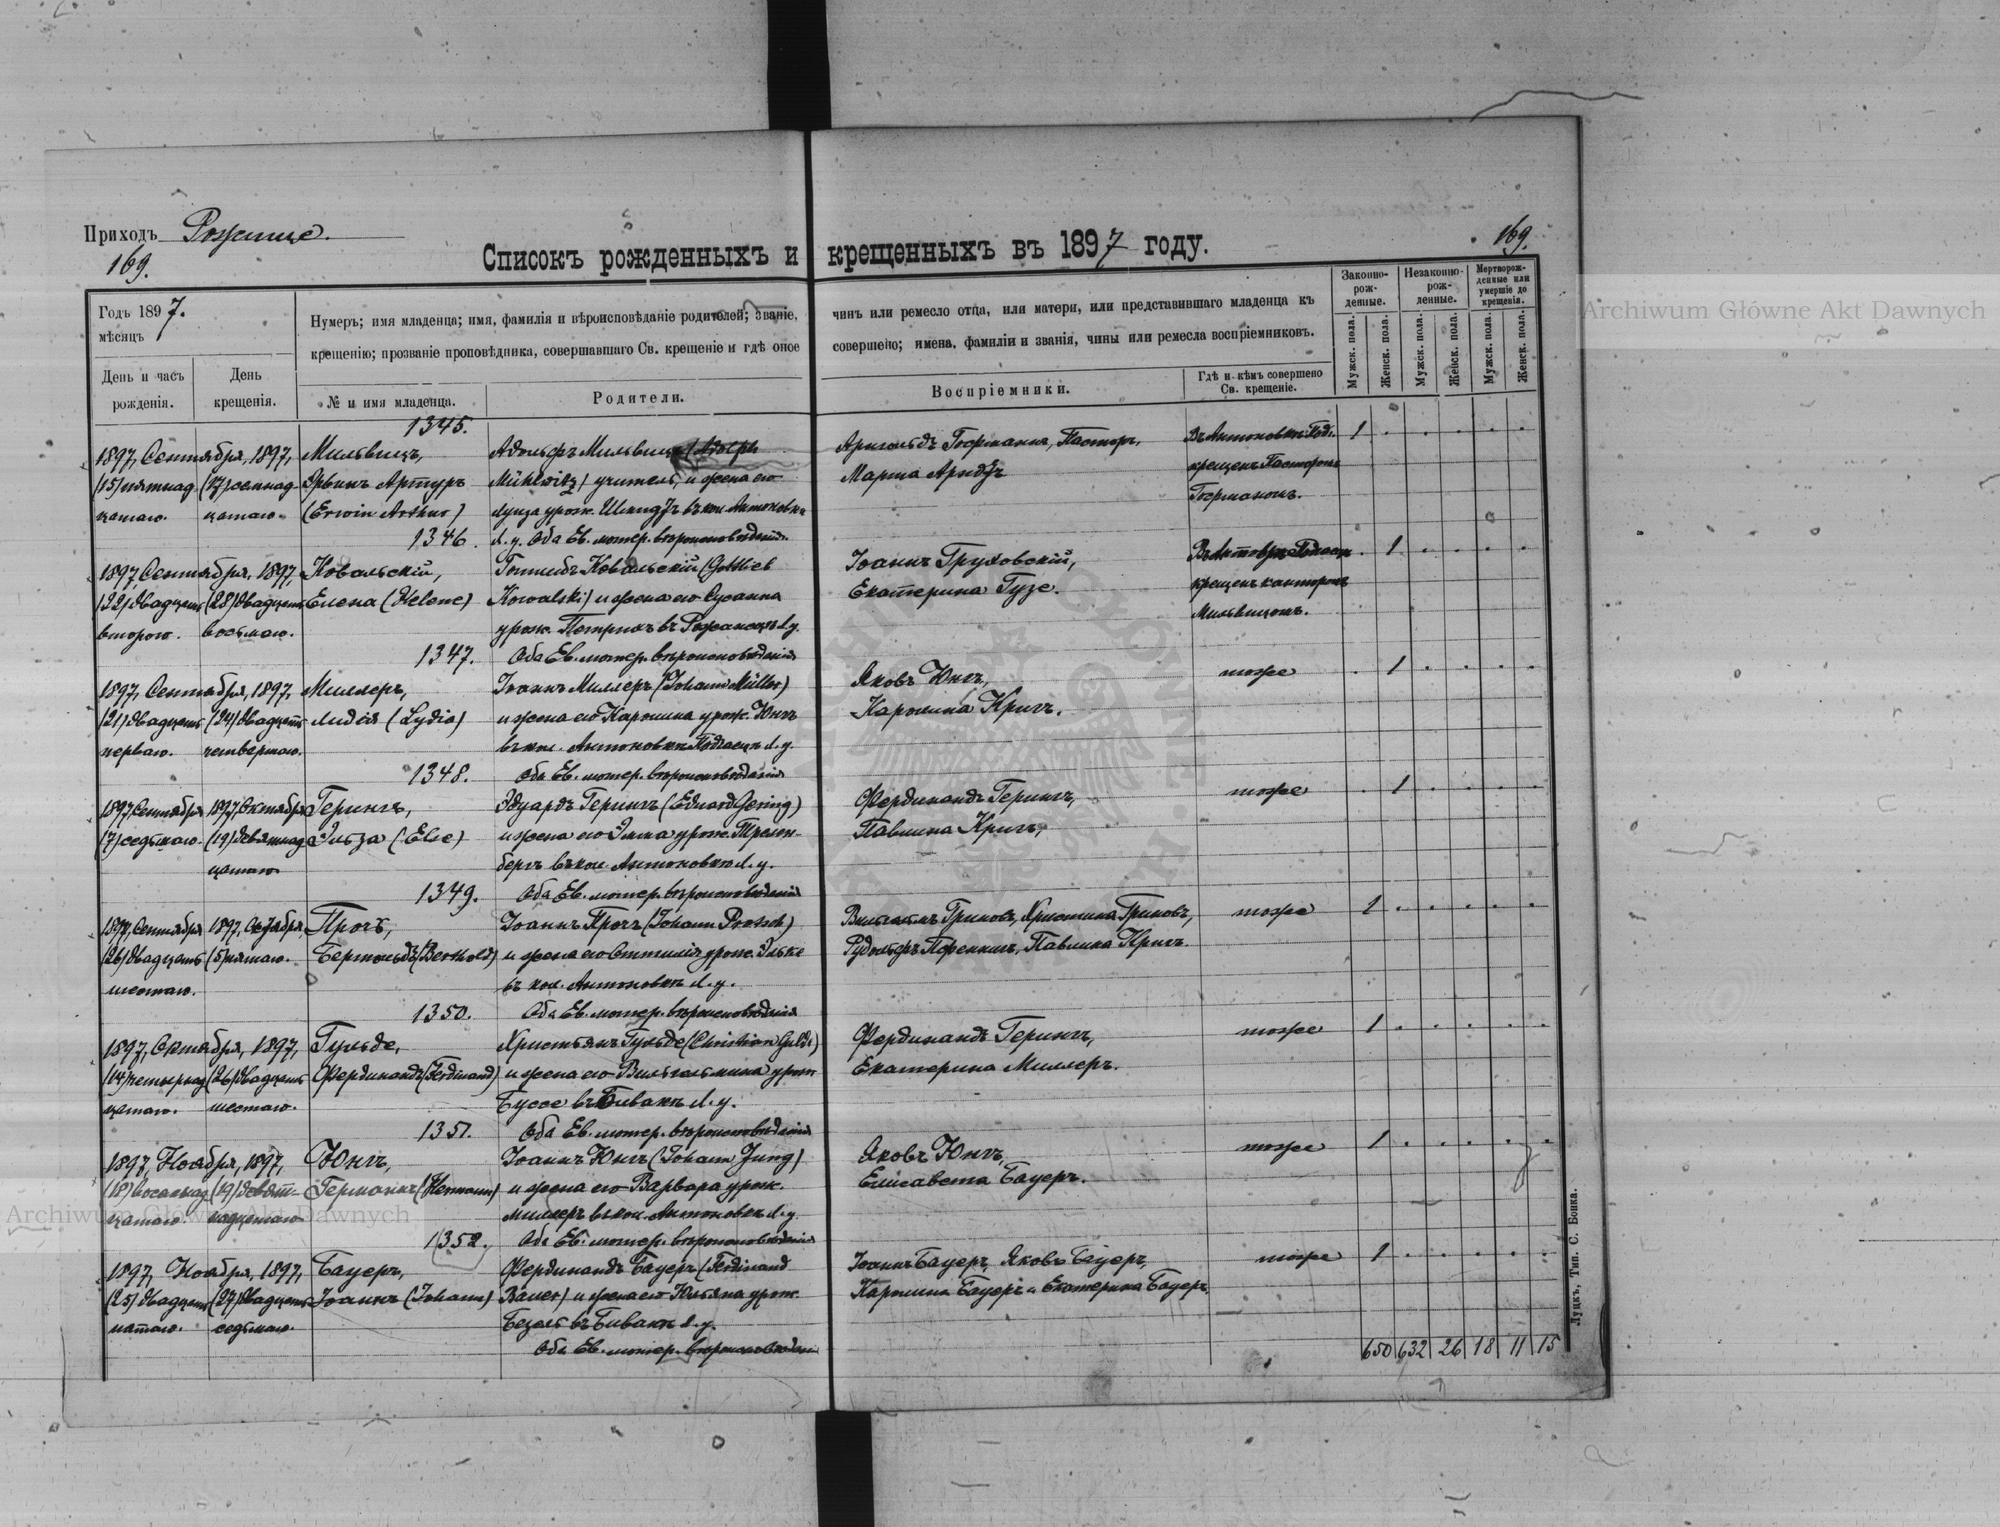 Приходъ Рожище.
169.
Списокъ рожденныхъ и крещенныхъ въ 1897 году.
169.
Годъ 1897.
мѣсяцъ
День и часъ рожденія.
День крещенія.
Нумеръ; имя младенца; имя, фамилія и вѣроисповѣданіе родителей; званіе,
крещенію; прозваніе проповѣдника, совершавшаго Св. крещеніе и гдѣ оное
№ и имя младенца.
Родители.
чинъ или ремесло отца, или матери, или представившаго младенца къ
совершено; имена, фамиліи и званія, чины или ремесла воспріемниковъ.
Воспріемники.
Гдѣ и кѣмъ совершено Св. крещеніе.
Законно-рожденные.
Незаконно-рожденные.
Мертворожденные или умершіе до крещенія.
Мужск. пола.
Женск. пола.
Мужск. пола.
Женск. пола.
Мужск. пола.
Женск. пола.
1345.
1897, Сентября, 1897,
(15) пятнад (17) семнад
цатаго. цатаго.
Мильвицъ,
Эрвинъ Артуръ
(Erwin Arthur)
Адольфъ Мильвицъ (Adolph
Mühlwitz) учитель, и жена его
Луиза урож. Шмидтъ въ кол. Антоновкѣ
Л. у. Оба Ев. лютер. вѣроисповѣданія.
Арнольдъ Госрманнъ, Пасторъ,
Марта Арндтъ
Въ Антоновкѣ Под.
крещенъ Пасторомъ
1
1346.
1897 Сентября, 1897
(22) двадцать (28) двадцать
второго. восьмаго.
Ковальскій,
Елена (Helene)
Готлибъ Ковальскій (Gottlieb
Kowalski) и жена его Сусанна
урож. Петрихъ въ Л. у.
Оба Ев. лютер. вѣроисповѣданія
Іоаннъ Груховскій,
Екатерина Гузе.
крещенъ канторомъ
Мильвицомъ.
1
1347.
1897, Сентября, 1897,
(21) двадцать (24) двадцать
перваго. четвертаго.
Миллеръ,
Лидія (Lydia)
Іоаннъ Миллеръ (Johann Müller)
и жена его Каролина урож. Юнгъ
въ кол. Антоновкѣ Подлѣсцы Л. у.
Оба Ев. лютер. вѣроисповѣданія
Яковъ Юнгъ,
Каролина Кригъ.
тоже
1
1348.
1897, Сентября 1897, Октября
(7) седьмаго. (19) девятнад
цатаго
Герингъ,
Эльза (Else)
Эдуардъ Герингъ (Eduard Gering)
и жена его Эмма урож. Трелен-
бергъ въ кол. Антоновкѣ Л. у.
Оба Ев. лютер. вѣроисповѣданія
Фердинандъ Герингъ,
Павлина Кригъ,
тоже
1
1349.
1897, Сентября 1897, Октября,
(26) двадцать (5) пятаго.
шестаго.
Прочъ,
Бертольдъ (Berthold)
Іоаннъ Прочъ (Johann Protsch)
и жена его Оттилія урож. Эльке
въ кол. Антоновкѣ Л. у.
Оба Ев. лютер. вѣроисповѣданія
Вильгельмъ Гриновъ, Христина Гриновъ,
Рудольфъ Перенкигъ, Павлина Кригъ.
тоже
1
1350.
1897, Октября, 1897,
(14) четырнад (26) двадцать
цатаго. шестаго.
Гульде,
Фердинандъ (Ferdinand)
Христьянъ Гульде (Christian Gulde)
и жена его Вильгельмина урож.
Буссе въ Бивакъ Л. у.
Оба Ев. лютер. вѣроисповѣданія
Фердинандъ Герингъ,
Екатерина Миллеръ.
тоже
1
1351.
1897, Ноября, 1897,
(18) восемнад (19) девят-
цатаго. надцатаго
Юнгъ,
Германъ (Hermann)
Іоаннъ Юнгъ (Johann Jung)
и жена его Варвара урож.
Миллеръ въ кол. Антоновкѣ Л. у.
Оба Ев. лютер. вѣроисповѣданія
Яковъ Юнгъ,
Елисавета Бауеръ.
тоже
1
1352.
1897, Ноября, 1897,
(25) двадцать (27) двадцать
пятаго. седьмаго.
Бауеръ,
Іоаннъ (Johann)
Фердинандъ Бауеръ (Ferdinand
Bauer) и жена его Юльяна урож.
Безель въ Бивакъ Л. у.
Оба Ев. лютер. вѣроисповѣдан
Іоаннъ Бауеръ, Яковъ Бауеръ,
Каролина Бауеръ и Екатерина Бауеръ.
тоже
1
650 632 26 18 11 15
Луцкъ, Тип. С. Бонка.
Archiwum Główne Akt Dawnych
Archiwum Główne Akt Dawnych